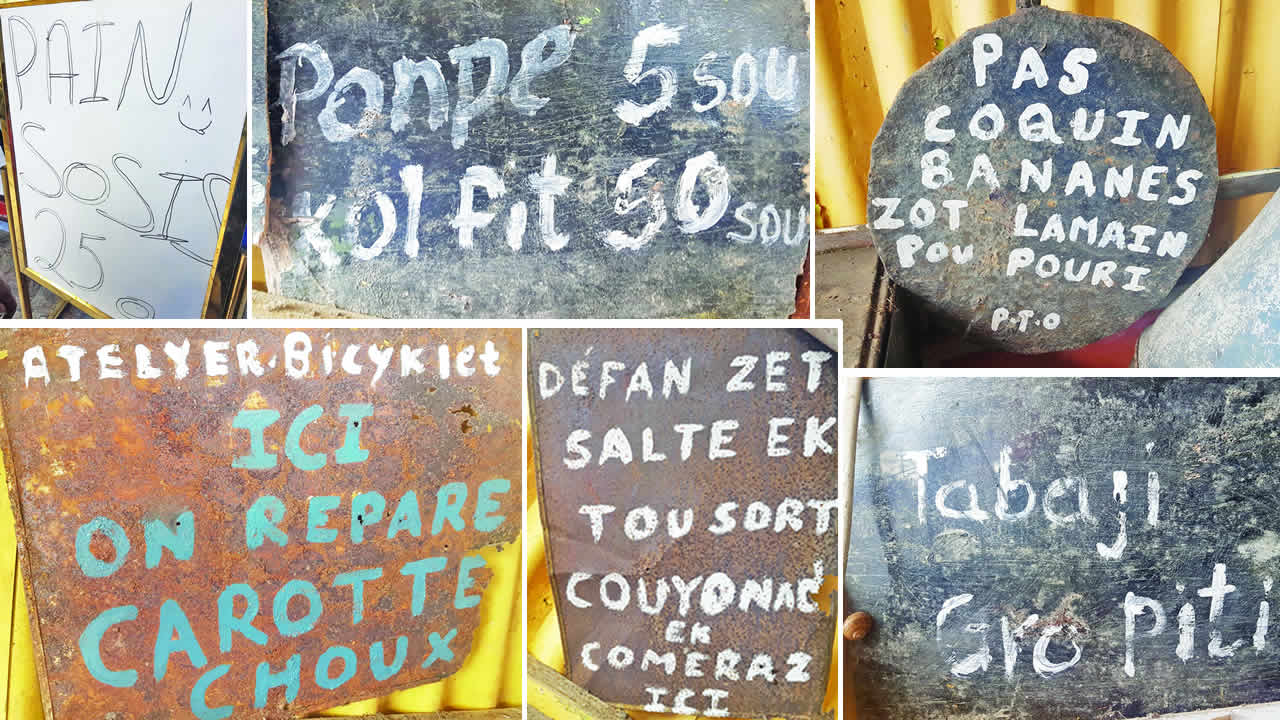 PAIN
SOSIS
25
Ponpe 5 SOU
kol fit 50 SOU
PAS
COQUIN
BANANES
ZOT LAMAIN
POU POURI
P.T.O
ATELYER. Bicyklet
ICI
ON REPARE
CAROTTE
CHOUX
DÉFAN ZET
SALTE EK
TOU SORT
COUYONAD
EK
COMERAZ
ICI
Tabaji
Gro piti